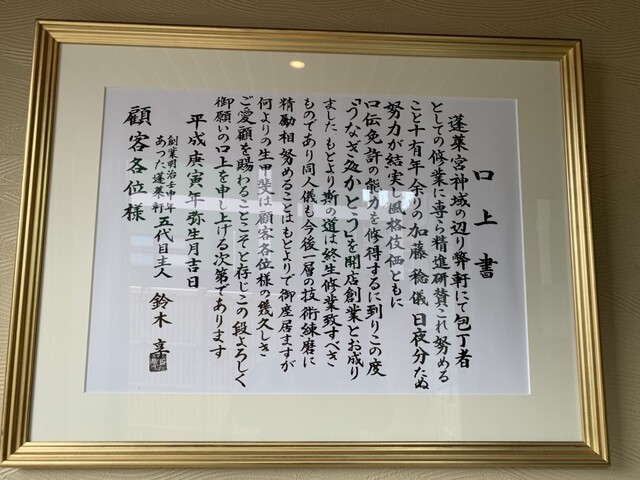 口上書
蓬莱宮神域の辺り弊軒にて包丁者
としての修業に専ら精進研賛これ努める
こと十有年人余りの加藤稔儀日夜分たぬ
努力が結実し風格伎価ともに
口伝免許の能力を修得するに到りこの度
「うなぎ処かとう」を開店創業とお成り
ましたもとより斯の道は終生修業致すべき
ものであり同人儀も今後一層の技術練磨に
精励相努めることはもとよりで御座居ますが
何よりの生甲斐は顧客各位様の幾久しき
ご愛顧を賜わることこそと存じこの段よろしく
御願いの口上を申し上げる次第であります
平成庚寅年弥生月吉日
創業明治壬申年
あつた蓬莱軒五代目主人 鈴木
顧客各位様